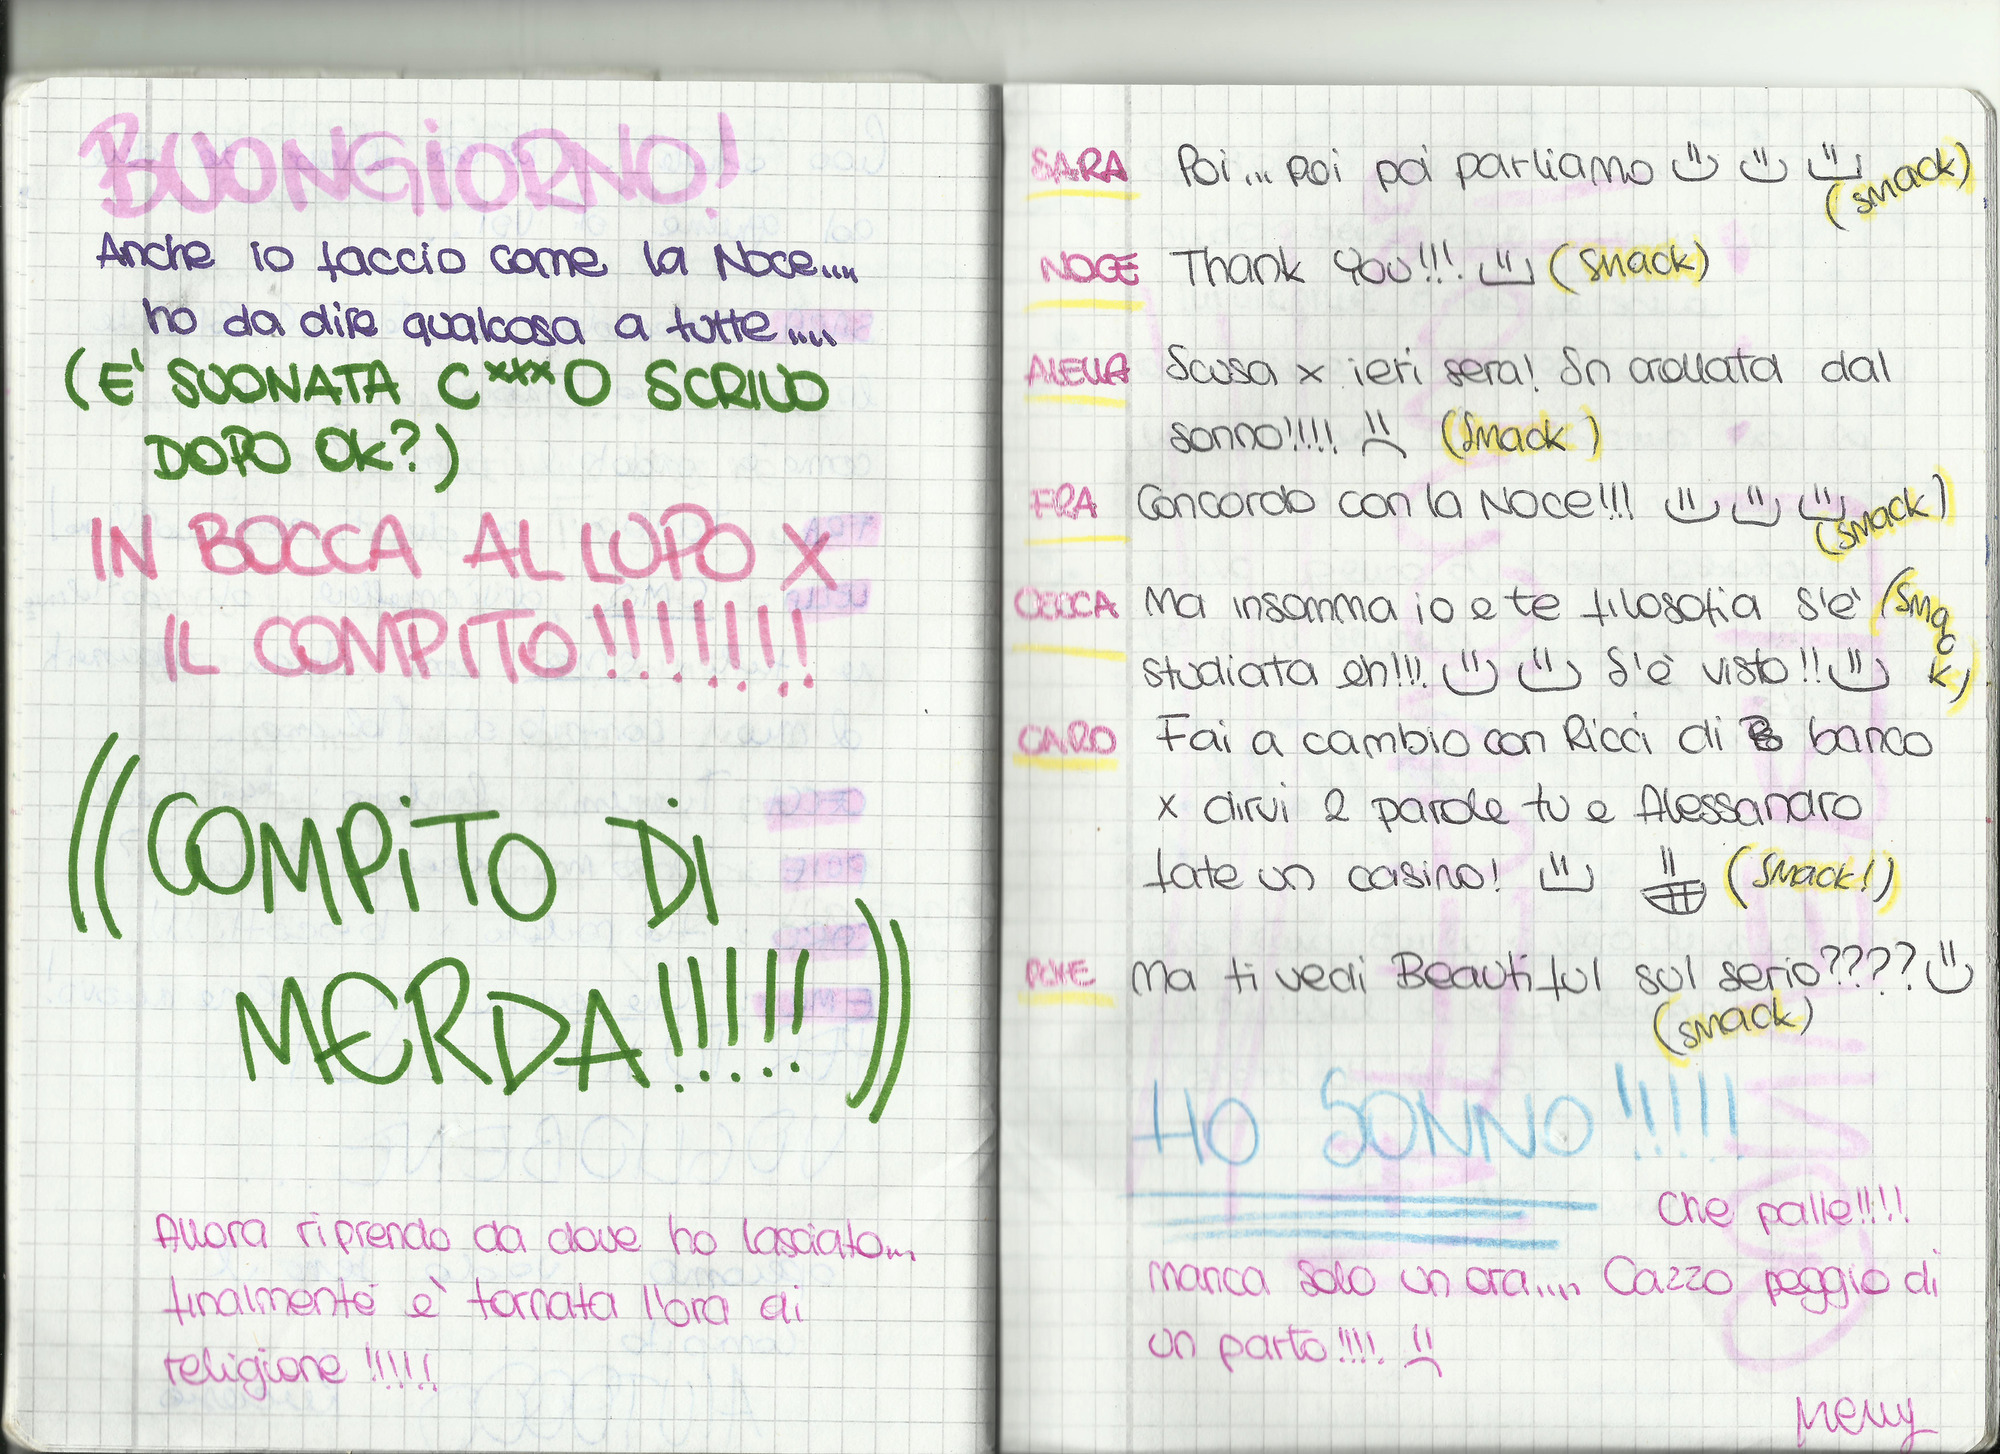 BUONGIORNO!
Anche io faccio come la Noce....
ho da dire qualcosa a tutte.....
(E' SUONATA C***O SCRIVO
DOPO OK?)
IN BOCCA AL LUPO X
IL COMPITO!!!!!!!
((COMPITO DI
MERDA!!!!!))
Allora riprendo da dove ho lasciato...
finalmente è tornata l'ora di
religione!!!!!
SARA Poi... poi poi parliamo (smack)
NOCE Thank You!!!. (smack)
ALELLA Scusa x ieri sera! Sn crollata dal
sonno!!!!! (Smack)
FRA Concordo con la Noce!!! (smack)
CECCA Ma insomma io e te filosofia s'è (smack)
studiata eh!!!. S'è visto!!
CARO Fai a cambio con Ricci di banco
x dirvi 2 parole tu e Alessandro
fate un casino! (Smack!)
Ma ti vedi Beautiful sul serio????
(smack)
HO SONNO!!!!!
Che palle!!!!
manca solo un'ora.... Cazzo peggio di
un parto!!!!.